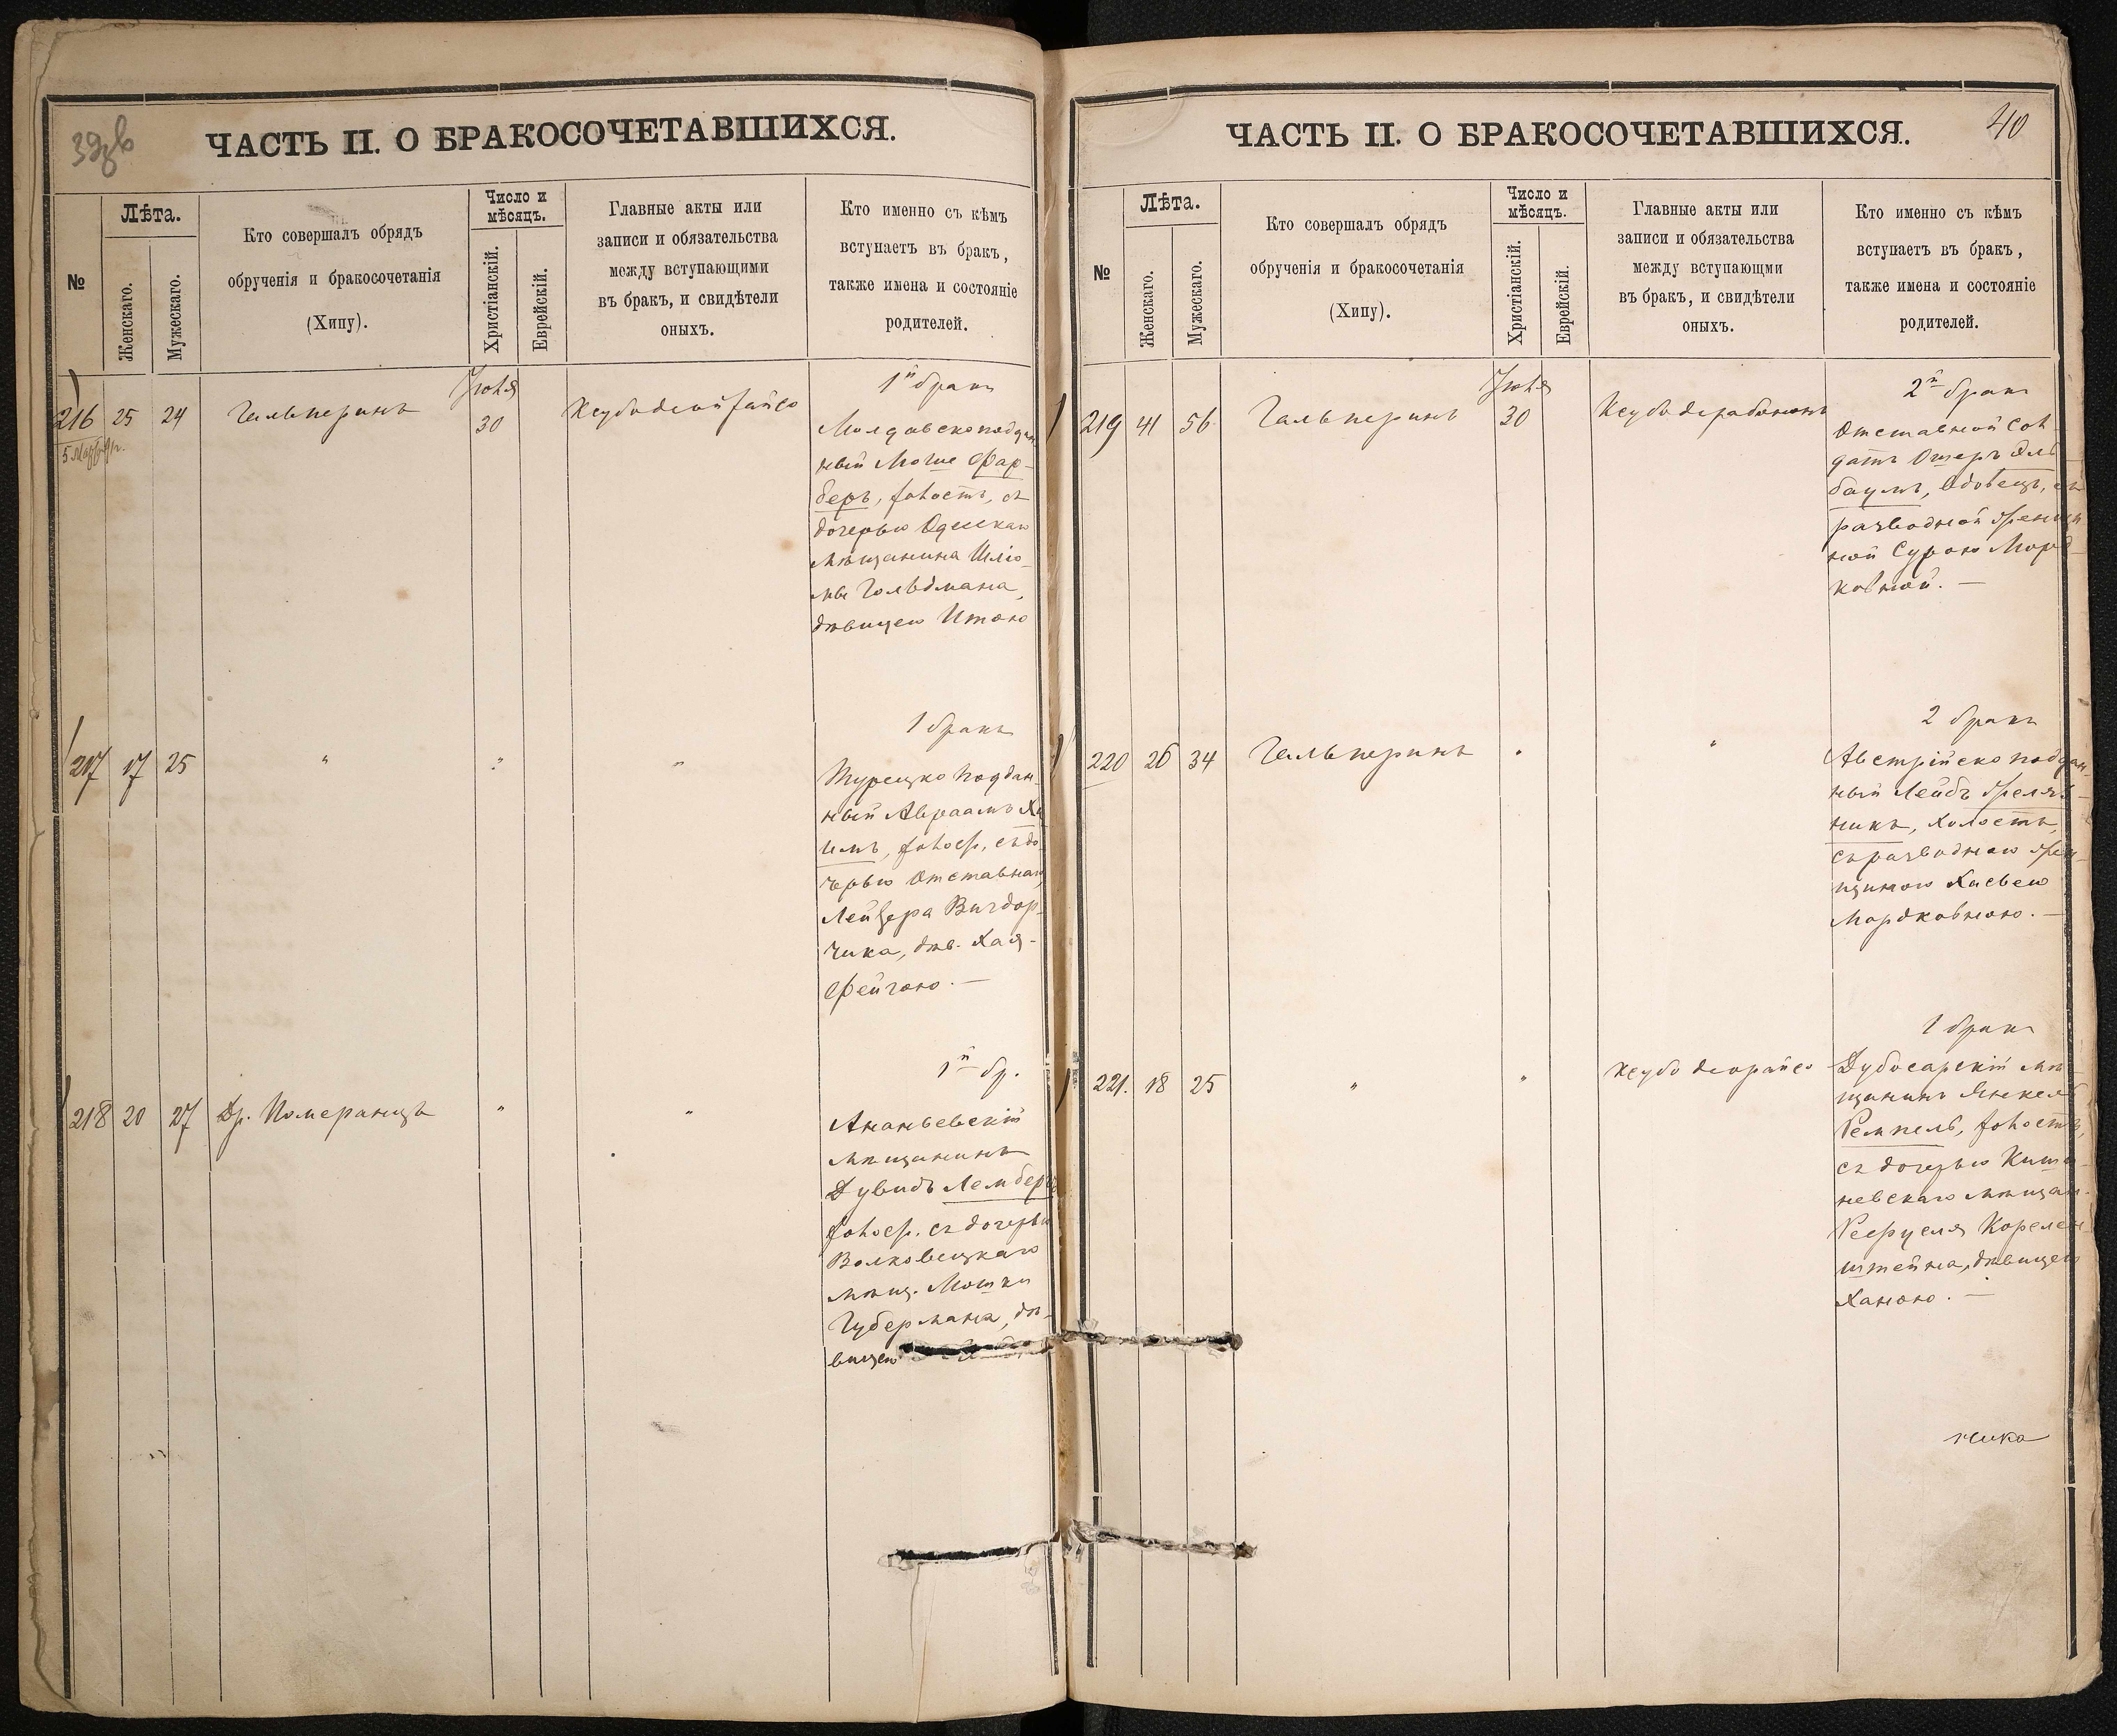 ЧАСТЬ II. О БРАКОСОЧЕТАВШИХСЯ.
№
Лѣта.
Женскаго.
Мужескаго.
Кто совершалъ обрядъ
обрученія и бракосочетанія
(Хипу).
Число и
мѣсяцъ.
Христіанскій.
Еврейскій.
Главные акты или
записи и обязательства
между вступающими
въ бракъ, и свидѣтели
оныхъ.
Кто именно съ кѣмъ
вступаетъ въ бракъ,
также имена и состояніе
родителей.
216 25 24 Гальперинъ
Іюля
30
1й бракъ
Молдавскоподдан-
ный Моше Фар-
беръ, холостъ, съ
дочерью Одесскаго
мѣщанина Шліо-
мы Гольдмана,
дѣвицею Итою
217 17 25 " " "
1 бракъ
Турецко поддан-
ный Авраамъ Ха
имъ, холос., съ до-
черью Отставнаго
Лейзера Вигдор-
чика, дѣв. Хая-
Фейгою. —
218 20 27 Др. Померанцъ " "
1й бр.
Ананьевскій
мѣщанинъ
Дувидъ Лемберг
холос. съ дочерью
Волковецкаго
мѣщ. Мошки
Губермана, дѣ-
вицею
ЧАСТЬ II. О БРАКОСОЧЕТАВШИХСЯ.
40
№
Лѣта.
Женскаго.
Мужескаго.
Кто совершалъ обрядъ
обрученія и бракосочетанія
(Хипу).
Число и
мѣсяцъ.
Христіанскій.
Еврейскій.
Главные акты или
записи и обязательства
между вступающми
въ бракъ, и свидѣтели
оныхъ.
Кто именно съ кѣмъ
вступаетъ въ бракъ,
также имена и состояніе
родителей.
219 41 56 Гальперинъ
Іюля
30
Ксубо дерабононъ
2й бракъ
Отставной сол
датъ Ошеръ Эль
баумъ, вдовецъ, съ
разводной женщи
ной Сурою Морд-
ковной. —
220 26 34 Гальперинъ " "
2 бракъ
Австрійско поддан-
ный Лейбъ
никъ, холостъ,
съ разводною жен-
щиною Хасвею
Мордковною. —
221. 18 25 " "
Ксубо деорайсо
1 бракъ
Дубосарскій мѣ-
щанинъ Янкель
Гемпель, холостъ,
съ дочерью Киши
невскаго мѣщан.
Корелен
штейна, дѣвицею
Ханою. —